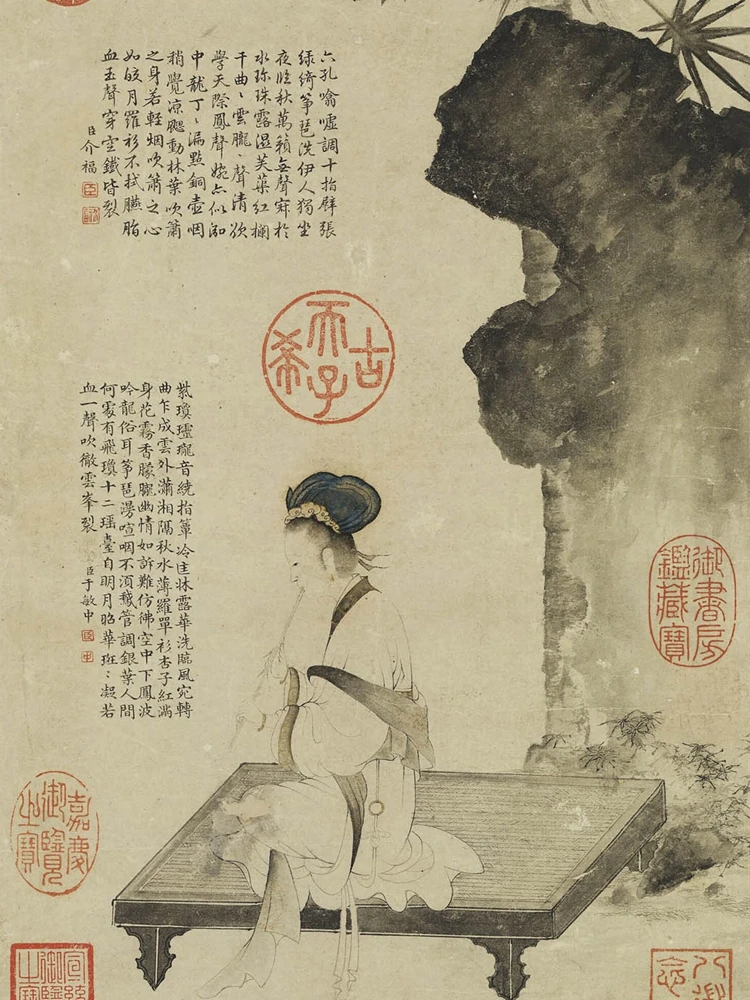 六孔噏噓調十指臂張
綠綺箏琶洗伊人獨坐
夜臨秋萬籟無聲寂於
水珎珠露濕芙蕖紅欄
干曲〻雲朧〻聲清欲
學天際鳳聲婉亦似泓
中龍丁〻漏點銅壺咽
稍覺凉颸動林葉吹簫
之身若輕烟吹簫之心
如皎月羅衫不拭臙脂
血玉聲穿空鐵皆裂
臣介福
古希天子
紫瓊瓏音繞指簟冷匡牀露華洗臨風宛轉
曲乍成雲外瀟湘隔秋水薄羅單衫杏子紅滿
身花霧香朦朧幽情如訴難仿彿空中下鳳波
吟龍俗耳箏琶漫喧咽不須鵞管調銀葉人間
何處有飛瓊十二瑤臺自明月昭華斑〻凝若
血一聲吹徹雲峯裂
臣于敏中
御書房鑑藏寶
嘉慶御覽之寶